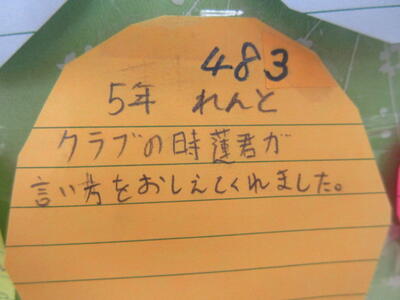 483
5年 れんと
クラブの時蓮君が
言い方をおしえてくれました。